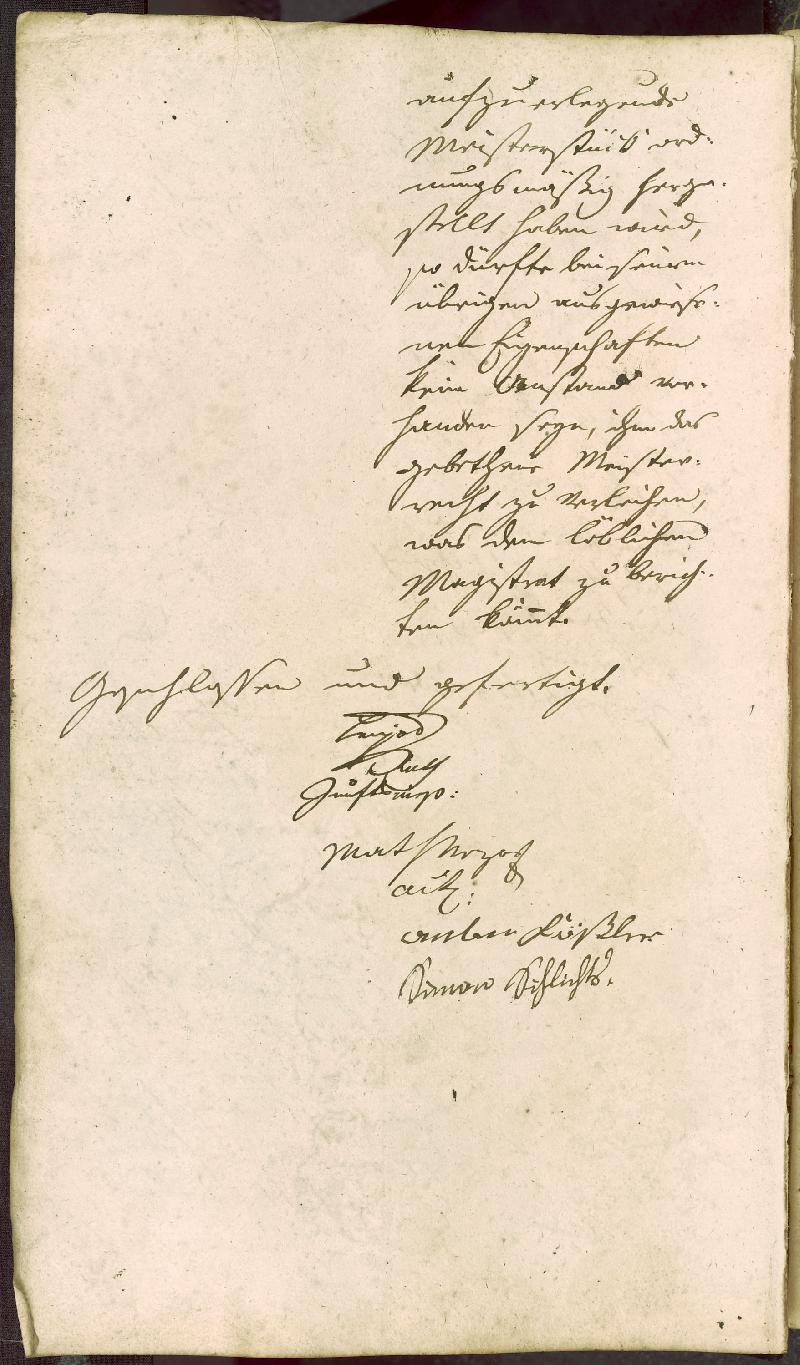 aufzuerlegende
Meisterstück ord-
nungsmäßig herge-
stellt haben wird,
so dürfte bei seinen
übrigen ausgewiese-
nen Eigenschaften
kein Anstand vor-
handen seyn, ihm das
gebethene Meister-
recht zu verleihen,
was dem löblichen
Magistrat zu berich-
ten kömt.
Geschlossen und gefertigt.
Math
Simon Schlichts.